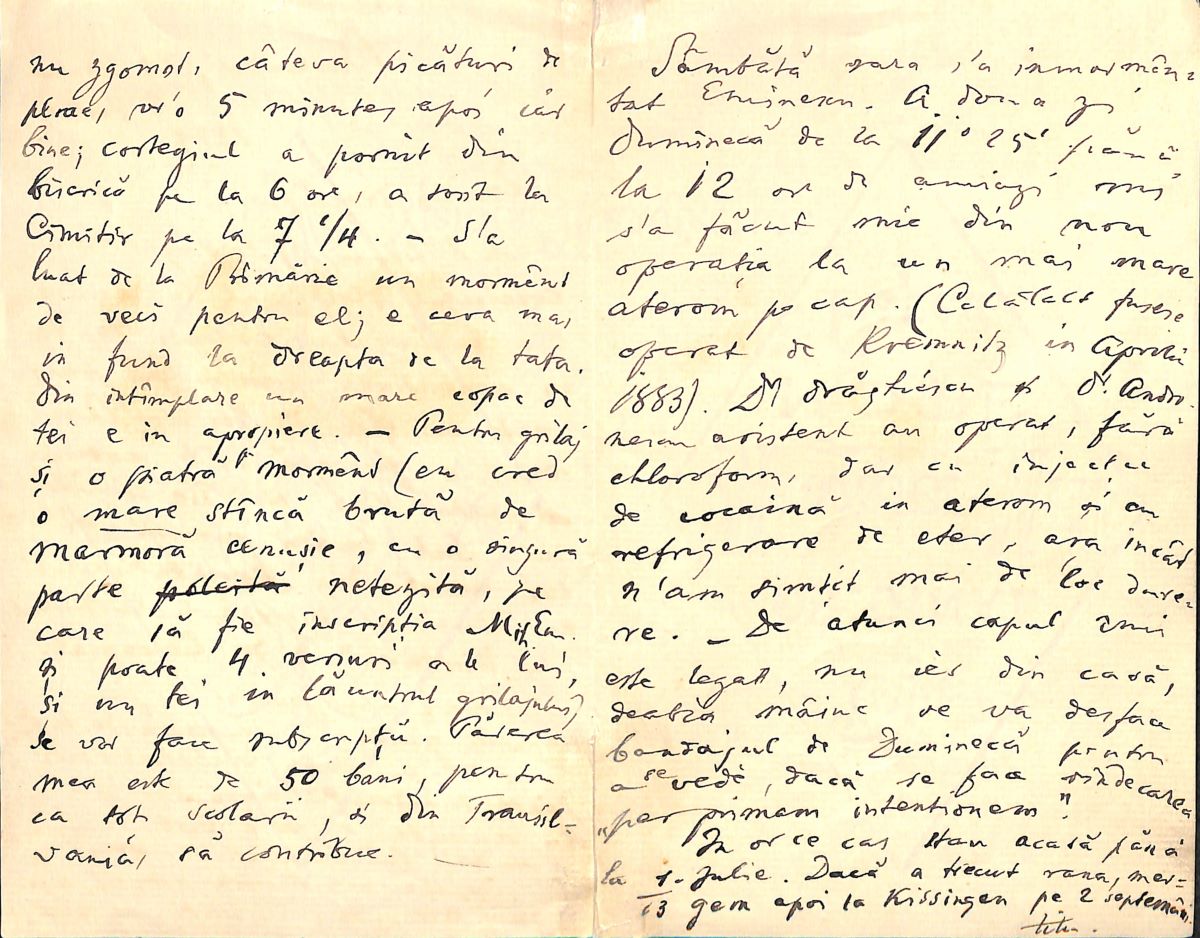 nu zgomot, câteva picături de
ploae, vr'o 5 minute, apoi iar
bine; cortegiul a pornit din
biserică pe la 6 ore, a sosit la
Cimitir pe la 7 1/4. – S'a
luat de la Primărie un mormênt
de veci pentru el; e ceva mai
in fund la dreapta de la tata.
Din intîmplare un mare copac de
tei e in apropiere. – Pentru grilaj
și o piatră mormênt (eu cred
o mare stîncă brută de
marmoră cenușie, cu o singură
parte netezită, pe
care să fie inscripția Mih Em.
și poate 4 versuri ale lui,
și un tei in lăuntrul grilajului)
se vor face subscripții. Părerea
mea este de 50 bani, pentru
ca toți școlarii, și din Transil-
vania, să contribue. —
Sâmbătă sara s'a inmormân-
tat Eminescu. A doua zi
Duminecă de la 11° 25' până
la 12 ore de amiazi mi
s'a făcut mie din nou
operația la un mai mare
aterom pe cap. (Celălalt fusese
operat de Kremnitz in Aprilie
1883). Dr Drăghiescu și Dr. Andro-
nescu asistent au operat, fără
chloroform, dar cu injecții
de cocaină in aterom și cu
refrigerare de eter, așa incât
n'am simțit mai de loc dure-
re. – De atunci capul imi
este legat, nu ies din casă,
deabia mâine se va desface
bandajul de Duminecă pentru
a se vedè, dacă se face vindecarea
„per primam intentionem".
In orce cas stau acasă până
la 1/13 Julie. Dacă a trecut rana, mer-
gem apoi la Kissingen pe 2 septemâni.
Titu.